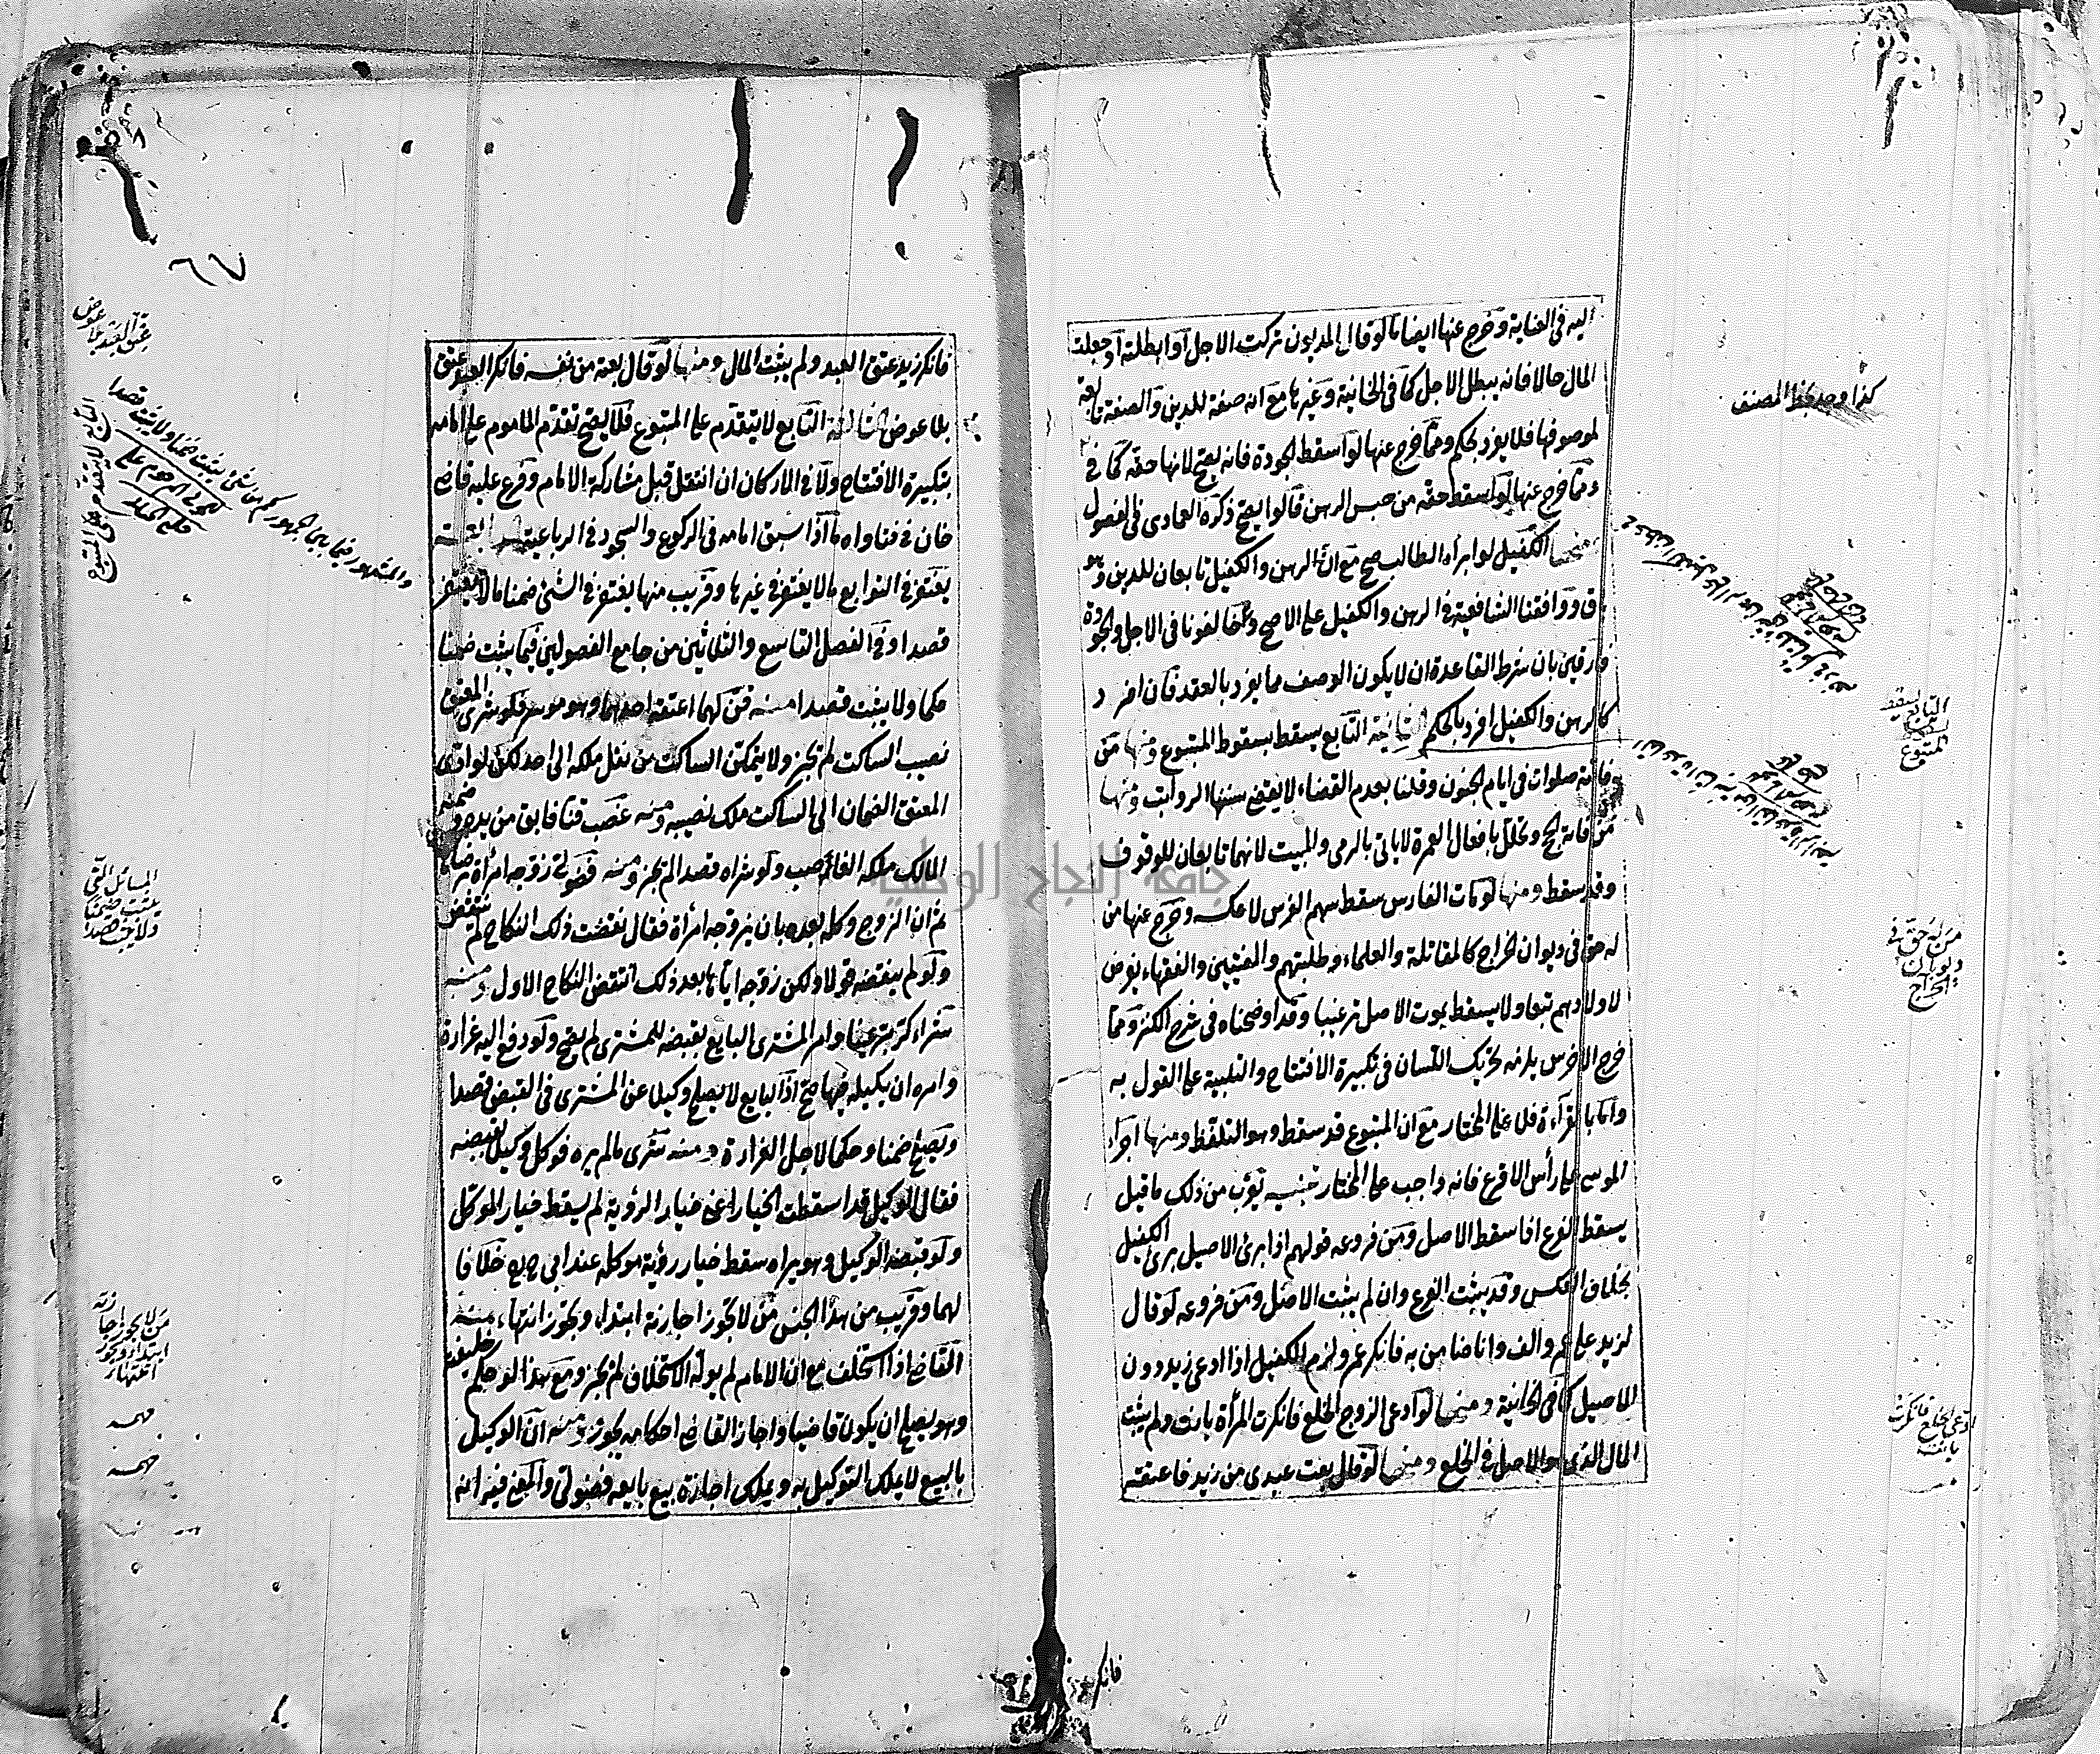 اليه في العناية وخرج عنها ايضا ما لو قال المديون تركت الاجل او ابطلته او جعلت
المال حالا فانه يبطل الاجل كما في الخانية وغيرها مع انه صفة للدين والصفة تابعة
لموصوفها فلا يفرد بحكم ومما خرج عنها لو اسقط الجودة فانه يصح لانها حقه كما في
ومما خرج عنها لو اسقط حقه من حبس الرهن قالوا يصح ذكره العمادي في الفصول
ومنها الكفيل لو ابرأه الطالب صح مع ان الرهن والكفيل تابعان للدين وهو
ق ووافقنا الشافعية في الرهن والكفيل على الاصح وخالفونا في الاجل والجودة
فارقين بان شرط القاعدة ان لا يكون الوصف مما يفرد بالعقد فان افرد
كالرهن والكفيل افرد بالحكم الثانية التابع يسقط بسقوط المتبوع ومنها من
فاتته صلوات في ايام الجنون وقلنا بعدم القضاء لا يقضي سننها الرواتب ومنها
من فاته الحج وتحلل بافعال العمرة لا ياتي بالرمي والمبيت لانهما تابعان للوقوف
وقد سقط ومنها لو مات الفارس سقط سهم الفرس لا عكسه وخرج عنها من
له حق في ديوان الخراج كالمقاتلة والعلماء وطلبتهم والمفتيين والفقهاء يفرض
لاولادهم تبعا ولا يسقط بموت الاصل ترغيبا وقد اوضحناه في شرح الكنز ومما
خرج الاخرس يلزمه تحريك اللسان في تكبيرة الافتتاح والتلبية على القول به
واما بالقرآءة فلا على المختار مع ان المتبوع قد سقط وهو التلفظ ومنها اجراء
الموسى على رأس الاقرع فانه واجب على المختار تنبيه يقرب من ذلك ما قيل
يسقط الفرع اذا سقط الاصل ومن فروعه قولهم اذا برئ الاصيل برئ الكفيل
بخلاف العكس وقد يثبت الفرع وان لم يثبت الاصل ومن فروعه لو قال
لزيد على عمرو الف وانا ضامن به فانكر عمرو لزم الكفيل اذا ادعى زيد دون
الاصيل كما في الخانية ومنها لو ادعى الزوج الخلع فانكرت المرأة بانت ولم يثبت
المال الذي هو الاصل في الخلع ومنها لو قال بعت عبدي من زيد فاعتقه
كذا وجد بخط المصنف
التابع يسقط
بسقوط
المتبوع
من له حق في
ديوان
الخراج
ادعى الخلع فانكرت
بانت
فانكر
فانكر زيد عتق العبد ولم يثبت المال ومنها لو قال بعته من نفسه فانكر العبد عتق
بلا عوض الثالثة التابع لا يتقدم على المتبوع فلا يصح تقدم الماموم على امامه
بتكبيرة الافتتاح ولا في الاركان ان انتقل قبل مشاركة الامام وفرع عليه قاضي
خان في فتاواه ما اذا سبق امامه في الركوع والسجود في الرباعية الرابعة
يغتفر في التوابع ما لا يغتفر في غيرها وقريب منها يغتفر في الشئ ضمنا ما لا يغتفر
قصدا وفي الفصل التاسع والثلاثين من جامع الفصولين فيما يثبت ضمنا
حكما ولا يثبت قصدا منه قن لهما اعتقه احدهما وهو موسر فلو شرى المعتق
نصيب الساكت لم تجز ولا يتمكن الساكت من نقل ملكه الى احد لكن لو ادى
المعتق الضمان الى الساكت ملك نصيبه ومنه غصب قنا فابق من يده وضمنه
المالك ملكه الغاصب ولو شراه قصدا لم تجز ومنه فضولي زوجه امرأة برضاها
ثم ان الزوج وكله بعده بان يزوجه امرأة فقال نقضت ذلك النكاح لم ينتقض
ولو لم ينقضه قولا ولكن زوجه اياها بعد ذلك انتقض النكاح الاول ومنه
شراء كر بر عينا وامر المشتري البايع بقبضه للمشتري لم يصح ولو دفع اليه غرارة
وامره ان يكيله فيها صح اذ البايع لا يصلح وكيلا عن المشتري في القبض قصدا
ويصلح ضمنا وحكما لاجل الغرارة ومنه شرى ما لم يره فوكل وكيل بقبضه
فقال الوكيل قد اسقطت الخيار اعني خيار الرؤية لم يسقط خيار الموكل
ولو قبضه الوكيل وهو يراه سقط خيار رؤية موكله عند ابي ح رح خلافا
لهما وقريب من هذا الجنس من لا تجوز اجازته ابتداء وتجوز انتهاء منه
القاضي اذا استخلف مع ان الامام لم يوله الاستخلاف لم تجز ومع هذا لو حكم خليفته
وهو يصلح ان يكون قاضيا واجاز القاضي احكامه تجوز ومنه ان الوكيل
بالبيع لا يملك التوكيل به ويملك اجازة بيع بايعه فضولي والمعنى فيه انه
٦٧
عتق العبد بلا عوض
التابع لا يتقدم على المتبوع
المسائل التي
يثبت ضمنا
ولا يثبت قصدا
من لا تجوز اجازته
ابتداء وتجوز
انتهاء
مهمه
مهمه
جامعة النجاح الوطنية